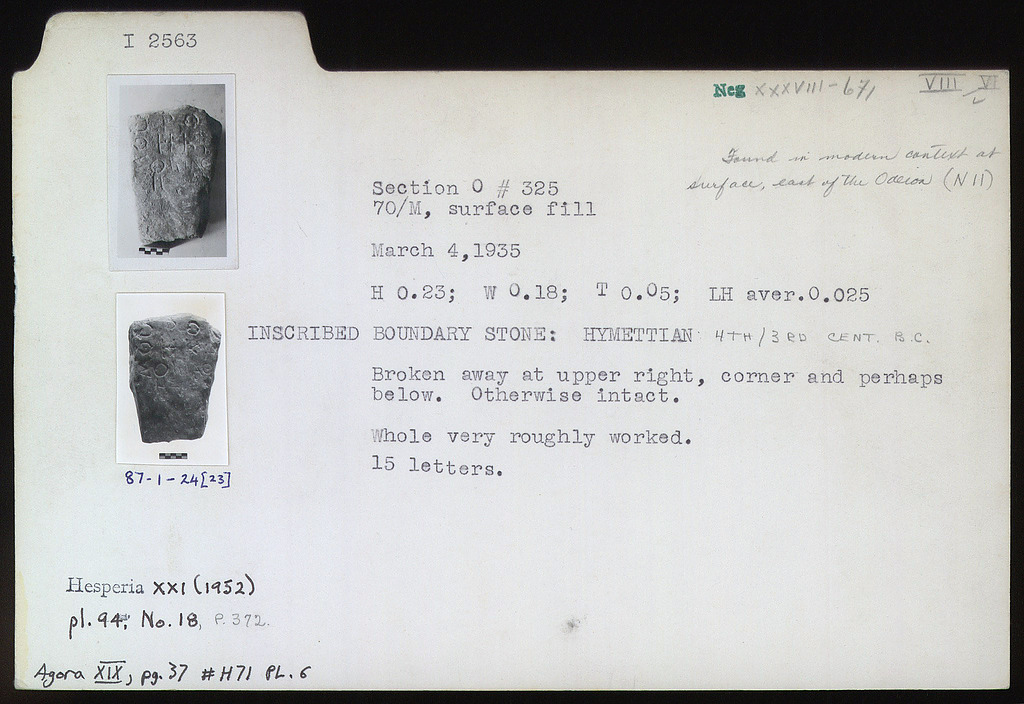 I 2563
Neg XXXVIII-671
VIII VI
Found in modern context at
surface, east of the Odeion (N 11)
Section O # 325
70/M, surface fill
March 4,1935
H 0.23; W 0.18; T 0.05; LH aver.0.025
INSCRIBED BOUNDARY STONE: HYMETTIAN 4TH/3RD CENT. B.C.
Broken away at upper right, corner and perhaps
below. Otherwise intact.
Whole very roughly worked.
15 letters.
87-1-24[23]
Hesperia XXI (1952)
pl. 94; No. 18, P. 372.
Agora XIX, pg. 37 #H71 PL. 6